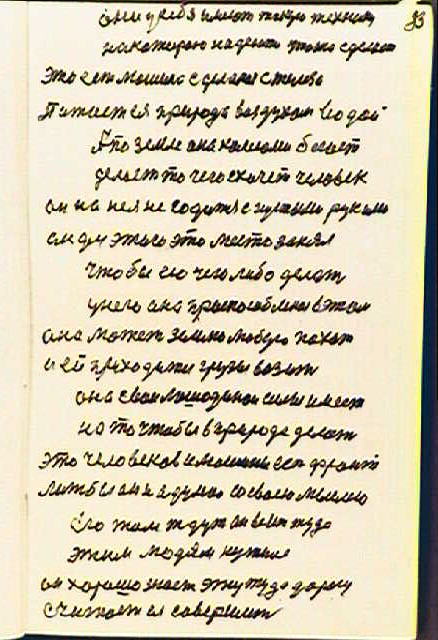 83
они у себя имеют такую технику
на которую надеюти только сделат
это ест машина сделана с телово
Питается природа воздухом водой
А по земле она колесами бегает
делает то чего схочет человек
он на нея не содится с пустыми руками
он для этого это место занял
что бы ею чего либо делат
у него она приспособлена в этом
она может землю мобера пахат
и ей приходится грузы возит
она своя лошодиная сила имеет
на то чтобы в природе делат
это человеков и машины ест фронт
лиж бы он я думаю со своею мыслею
его там ждут он всим туда
этим людям нужние
он хорошо знает эту туда дорогу
считается совершит